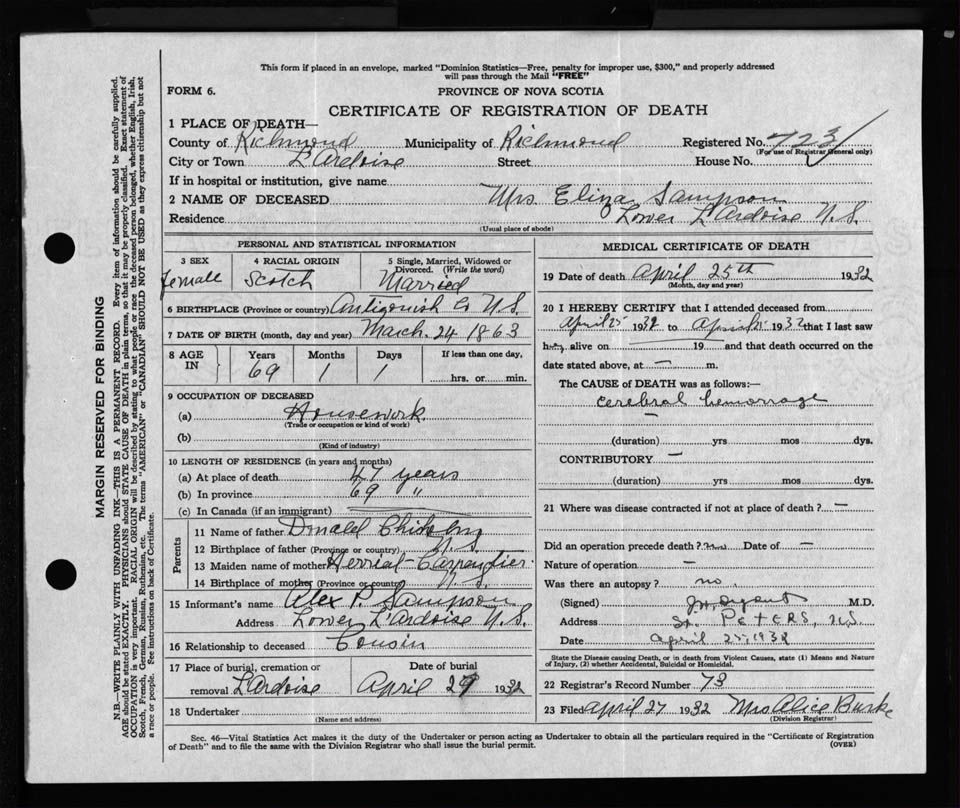 This form if placed in an envelope, marked "Dominion Statistics—Free, penalty for improper use, $300," and properly addressed
will pass through the Mail "FREE"
FORM 6.
PROVINCE OF NOVA SCOTIA
CERTIFICATE OF REGISTRATION OF DEATH
1 PLACE OF DEATH—
County of Richmond Municipality of Richmond Registered No. 723
(For use of Registrar General only)
City or Town L'Ardoise Street House No.
If in hospital or institution, give name
2 NAME OF DECEASED Mrs. Eliza Sampson
Residence Lower L'Ardoise N.S.
(Usual place of abode)
PERSONAL AND STATISTICAL INFORMATION
3 SEX 4 RACIAL ORIGIN 5 Single, Married, Widowed or
Divorced. (Write the word)
female Scotch Married
6 BIRTHPLACE (Province or country) Antigonish Co N.S.
7 DATE OF BIRTH (month, day and year) March 24 1863
8 AGE IN Years Months Days If less than one day,
69 1 1 hrs. or min.
9 OCCUPATION OF DECEASED
(a) Housework
(Trade or occupation or kind of work)
(b)
(Kind of industry)
10 LENGTH OF RESIDENCE (in years and months)
(a) At place of death 47 years
(b) In province 69 "
(c) In Canada (if an immigrant)
Parents
11 Name of father Donald
12 Birthplace of father (Province or country) N.S.
13 Maiden name of mother
14 Birthplace of mother (Province or country) N.S.
15 Informant's name Alex P. Sampson
Address Lower L'Ardoise N.S.
16 Relationship to deceased Cousin
17 Place of burial, cremation or Date of burial
removal L'Ardoise April 29 1932
18 Undertaker
(Name and address)
MEDICAL CERTIFICATE OF DEATH
19 Date of death April 25th 1932
(Month, day and year)
20 I HEREBY CERTIFY that I attended deceased from
April 25 1932 to April 25 1932 that I last saw
her alive on 19 and that death occurred on the
date stated above, at — m.
The CAUSE of DEATH was as follows:—
cerebral hemorrage
—
(duration) yrs mos dys.
CONTRIBUTORY —
(duration) yrs mos dys.
21 Where was disease contracted if not at place of death? —
Did an operation precede death? Date of —
Nature of operation —
Was there an autopsy? no
(Signed) M.D.
Address St. PETERS, N.S.
Date April 1932
State the Disease causing Death, or in death from Violent Causes, state (1) Means and Nature
of Injury, (2) whether Accidental, Suicidal or Homicidal.
22 Registrar's Record Number 73
23 Filed April 27 1932 Mrs Alice Burke
(Division Registrar)
Sec. 46—Vital Statistics Act makes it the duty of the Undertaker or person acting as Undertaker to obtain all the particulars required in the "Certificate of Registration
of Death" and to file the same with the Division Registrar who shall issue the burial permit. (OVER)
MARGIN RESERVED FOR BINDING
N.B.—WRITE PLAINLY WITH UNFADING INK—THIS IS A PERMANENT RECORD. Every item of information should be carefully supplied.
AGE should be stated EXACTLY. PHYSICIANS should STATE CAUSE OF DEATH in plain terms, so that it may be properly classified. Exact statement of
OCCUPATION is very important. RACIAL ORIGIN will be described by stating to what people or race the deceased person belonged, whether English, Irish,
Scotch, French, German, Russian, Ruthenian, etc. The terms "AMERICAN" or "CANADIAN" SHOULD NOT BE USED as they express citizenship but not
a race or people. See instructions on back of Certificate.